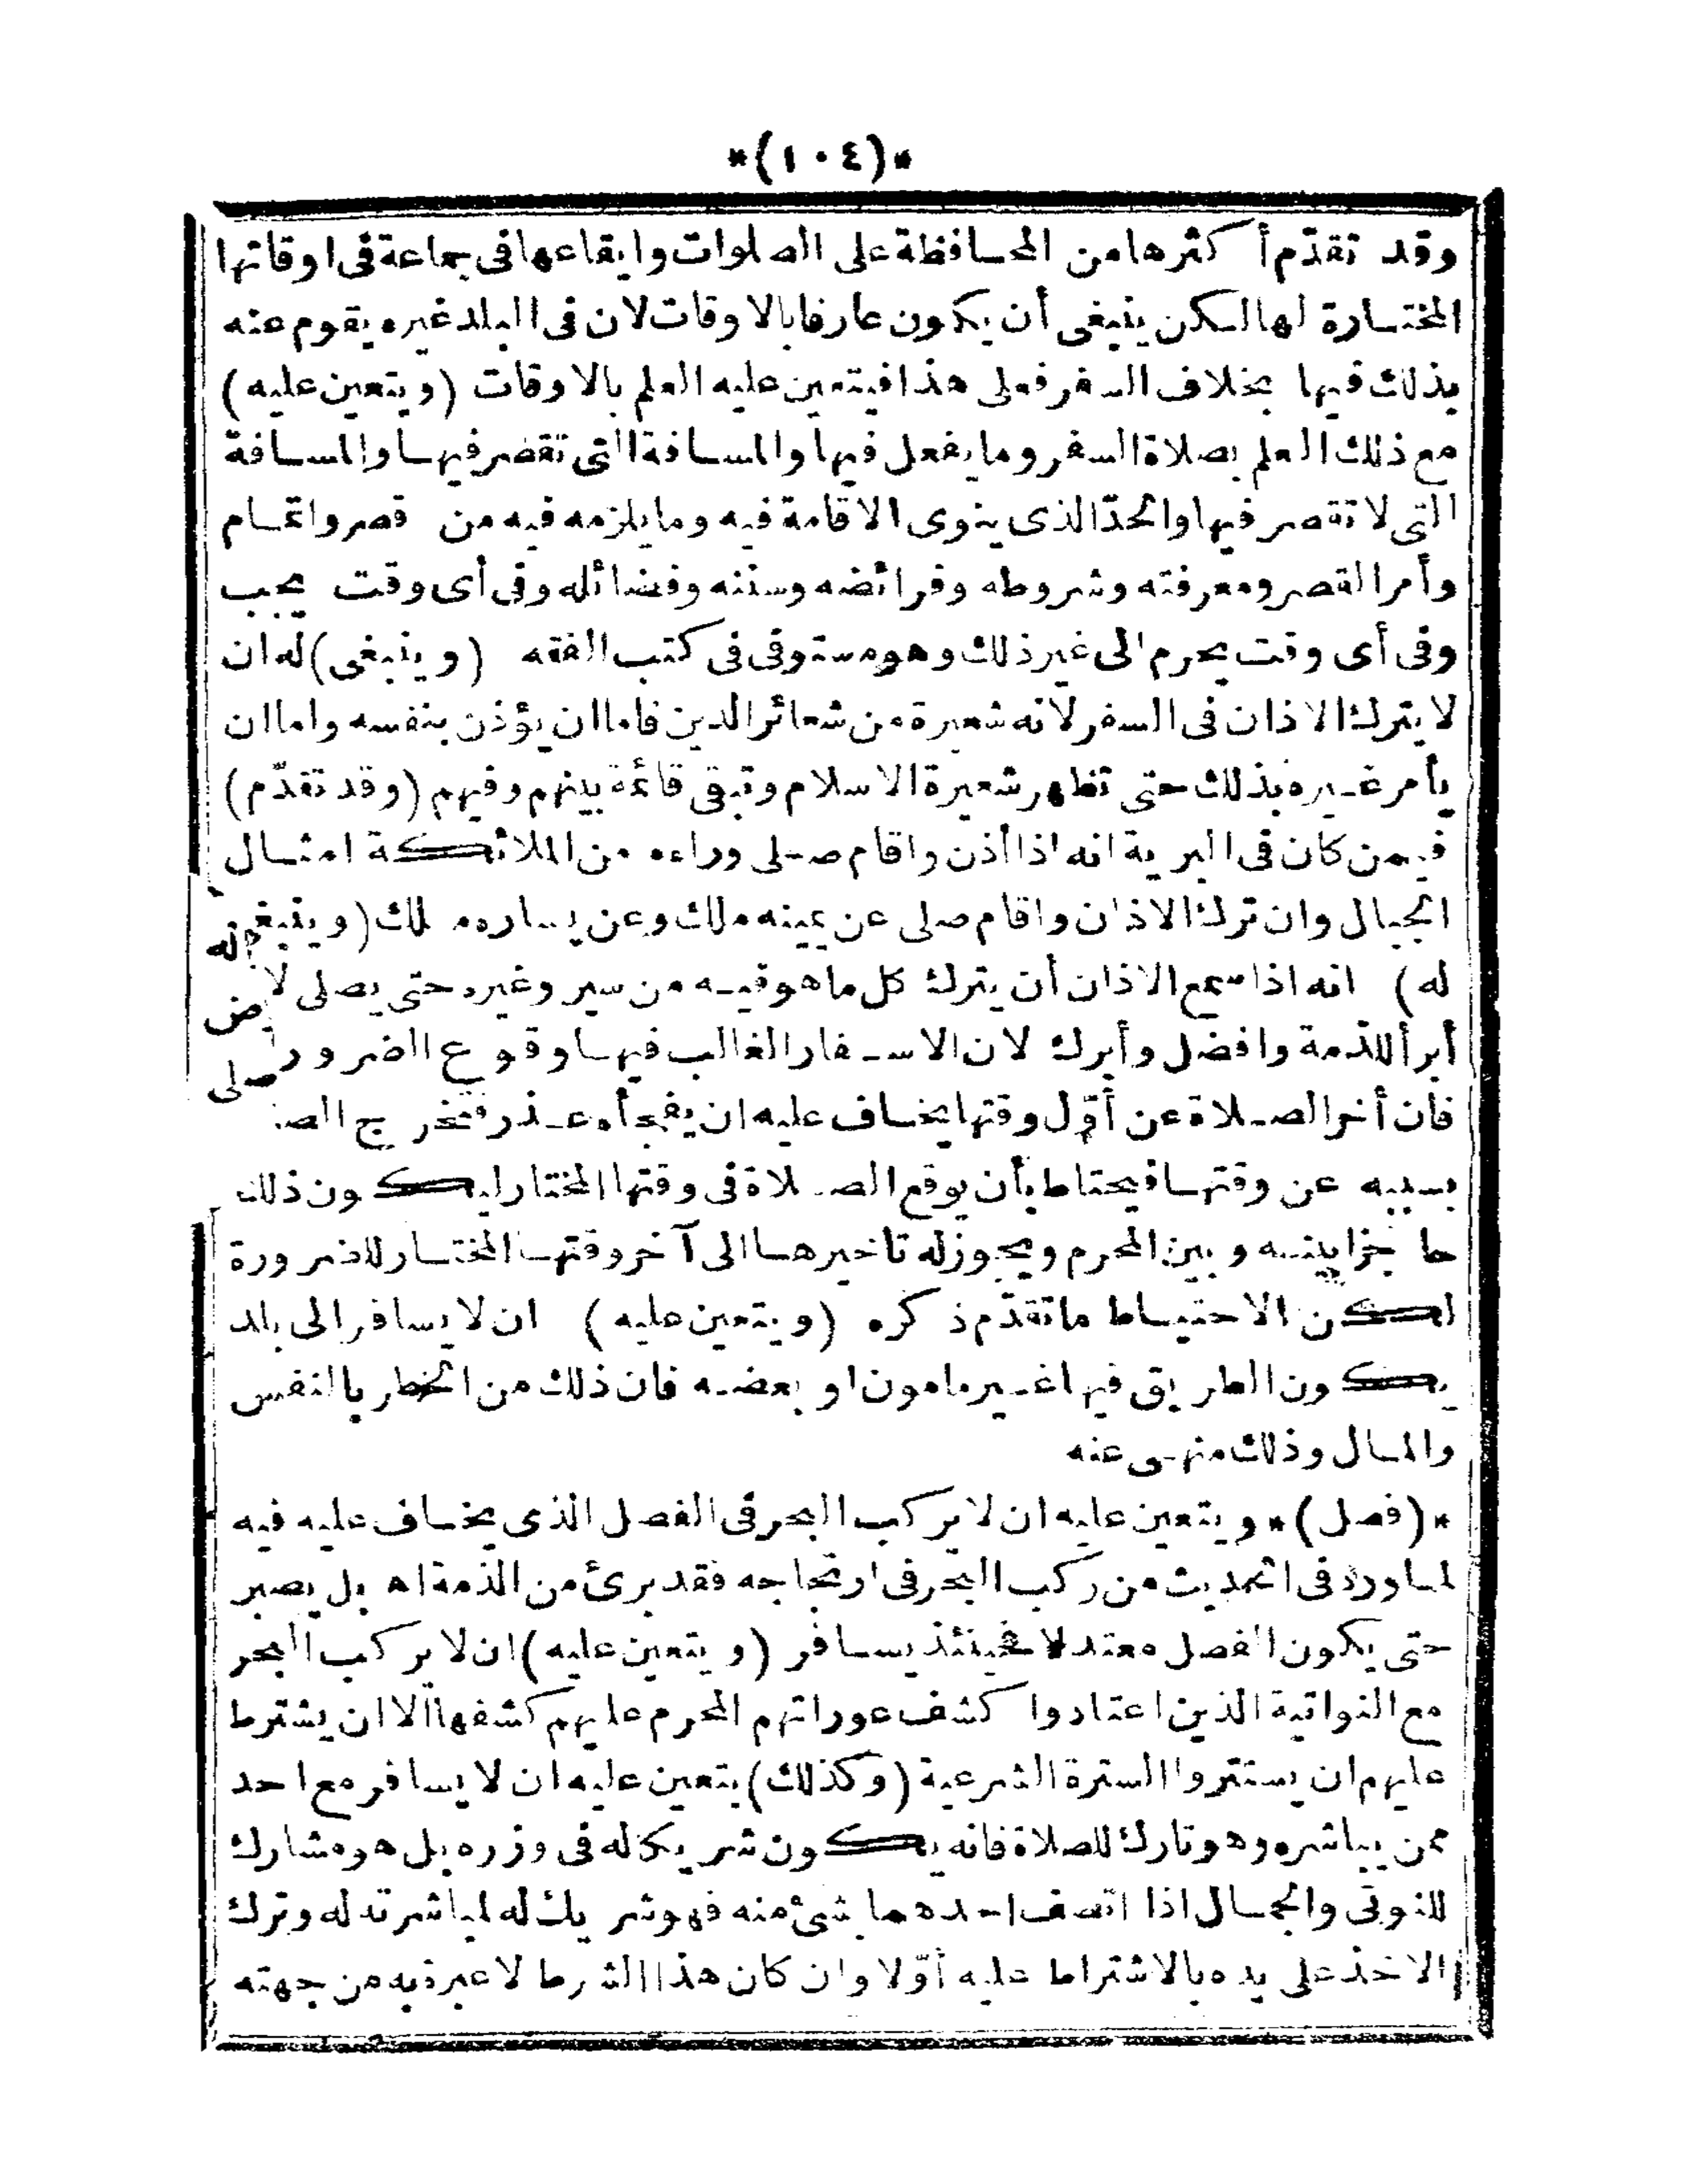 *(١٠٤)*
وقد تقدّم أكثرها من المحافظة على الصلوات وايقاعها فى جماعة فى اوقاتها
المختارة لها لكن ينبغى أن يكون عارفا بالاوقات لان فى البلد غيره يقوم عنه
بذلك فيها بخلاف السفر فعلى هذا فيتعين عليه العلم بالاوقات (ويتعين عليه)
مع ذلك العلم بصلاة السفر وما يفعل فيها والمسافة التى تقصر فيها والمسافة
التى لا تقصر فيها والحدّ الذى ينوى الاقامة فيه وما يلزمه فيه من قصر واتمام
وأمر القصر ومعرفته وشروطه وفرائضه وسننه وفضائله وفى أى وقت يجب
وفى أى وقت يحرم الى غير ذلك وهو مستوفى فى كتب الفقه (وينبغى) له ان
لا يترك الاذان فى السفر لانه شعيرة من شعائر الدين فاما ان يؤذن بنفسه واما ان
يأمر غيره بذلك حتى تظهر شعيرة الاسلام وتبقى قائمة بينهم وفيهم (وقد تقدّم)
فيمن كان فى البرية انه اذا أذن واقام صلى وراءه من الملائكة امثال
الجبال وان ترك الاذان واقام صلى عن يمينه ملك وعن يساره ملك (وينبغى
له) انه اذا سمع الاذان أن يترك كل ما هو فيه من سير وغيره حتى يصلى لا
أبرأ للذمة وافضل وأبرك لان الاسفار الغالب فيها وقوع الضرور
فان أخر الصلاة عن أوّل وقتها يخاف عليه ان يفجأه عذر فتخرج الص
بسببه عن وقتها فيحتاط بأن يوقع الصلاة فى وقتها المختار ليكون ذلك
حاجزا بينه وبين المحرم ويجوز له تاخيرها الى آخر وقتها المختار للضرورة
لكن الاحتياط ما تقدّم ذكره (ويتعين عليه) ان لا يسافر الى بلد
يكون الطريق فيها غير مامون او بعضه فان ذلك من الخطر بالنفس
والمال وذلك منهى عنه
*(فصل)* ويتعين عليه ان لا يركب البحر فى الفصل الذى يخاف عليه فيه
لما ورد فى الحديث من ركب البحر فى ارتجاجه فقد برئ من الذمة اه بل يصبر
حتى يكون الفصل معتدلا فحينئذ يسافر (ويتعين عليه) ان لا يركب البحر
مع النواتية الذين اعتادوا كشف عوراتهم المحرم عليهم كشفها الا ان يشترط
عليهم ان يستتروا السترة الشرعية (وكذلك) يتعين عليه ان لا يسافر مع احد
ممن يباشره وهو تارك للصلاة فانه يكون شريكا له فى وزره بل هو مشارك
للنوتى والجمال اذا اتصف احدهما بشئ منه فهو شريك له لمباشرته له وترك
الاخذ على يده بالاشتراط عليه أوّلا وان كان هذا الشرط لا عبرة به من جهته